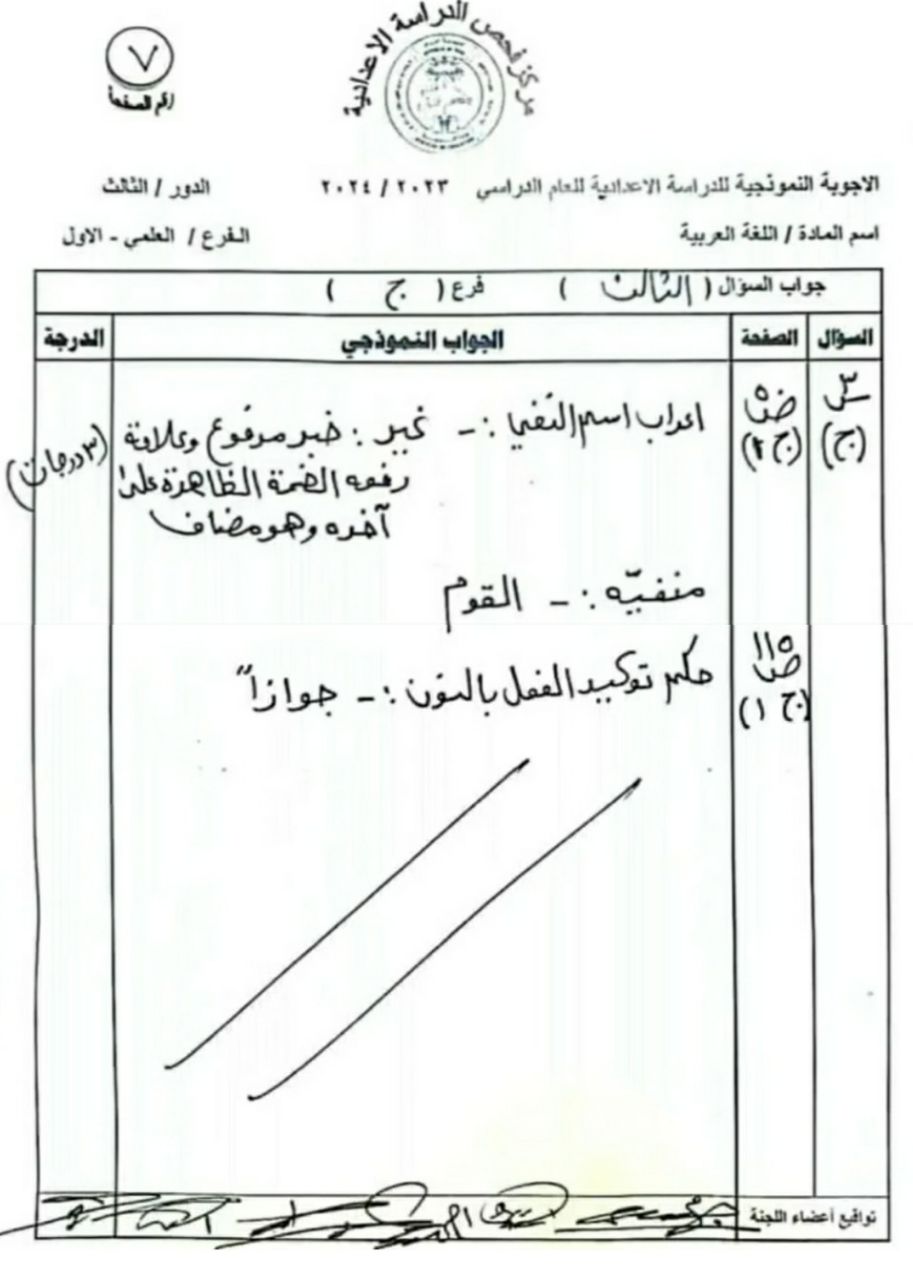 مركز فحص الدراسة الاعدادية
٧
رقم الصفحة
الاجوبة النموذجية للدراسة الاعدادية للعام الدراسي ٢٠٢٣ / ٢٠٢٤ الدور / الثالث
اسم المادة / اللغة العربية الفرع / العلمي - الاول
جواب السؤال ( الثالث ) فرع ( ج )
السؤال الصفحة الجواب النموذجي الدرجة
س٣ ص٥ اعراب اسم النفي :- غير : خبر مرفوع وعلامة (٣ درجات)
(ج) (ج ٢) رفعه الضمة الظاهرة على
آخره وهو مضاف
منفيّه :- القوم
ص١١٥ حكم توكيد الفعل بالنون :- جوازاً
(ج ١)
تواقيع أعضاء اللجنة